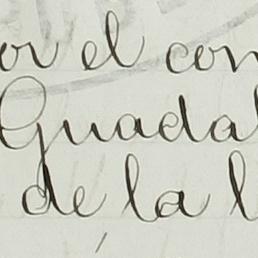 or el con
Guadal
de la l